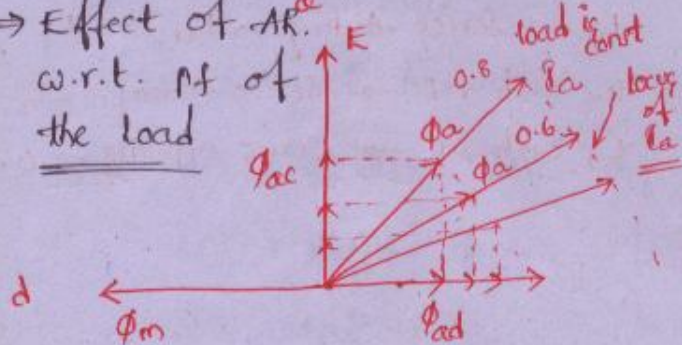 ⇒ Effect of AR.
w.r.t. pf of
the load
E
load is
const
0.8
Ia
locus
of
Ia
ϕa
0.6
ϕa
ϕac
d
ϕm
ϕad